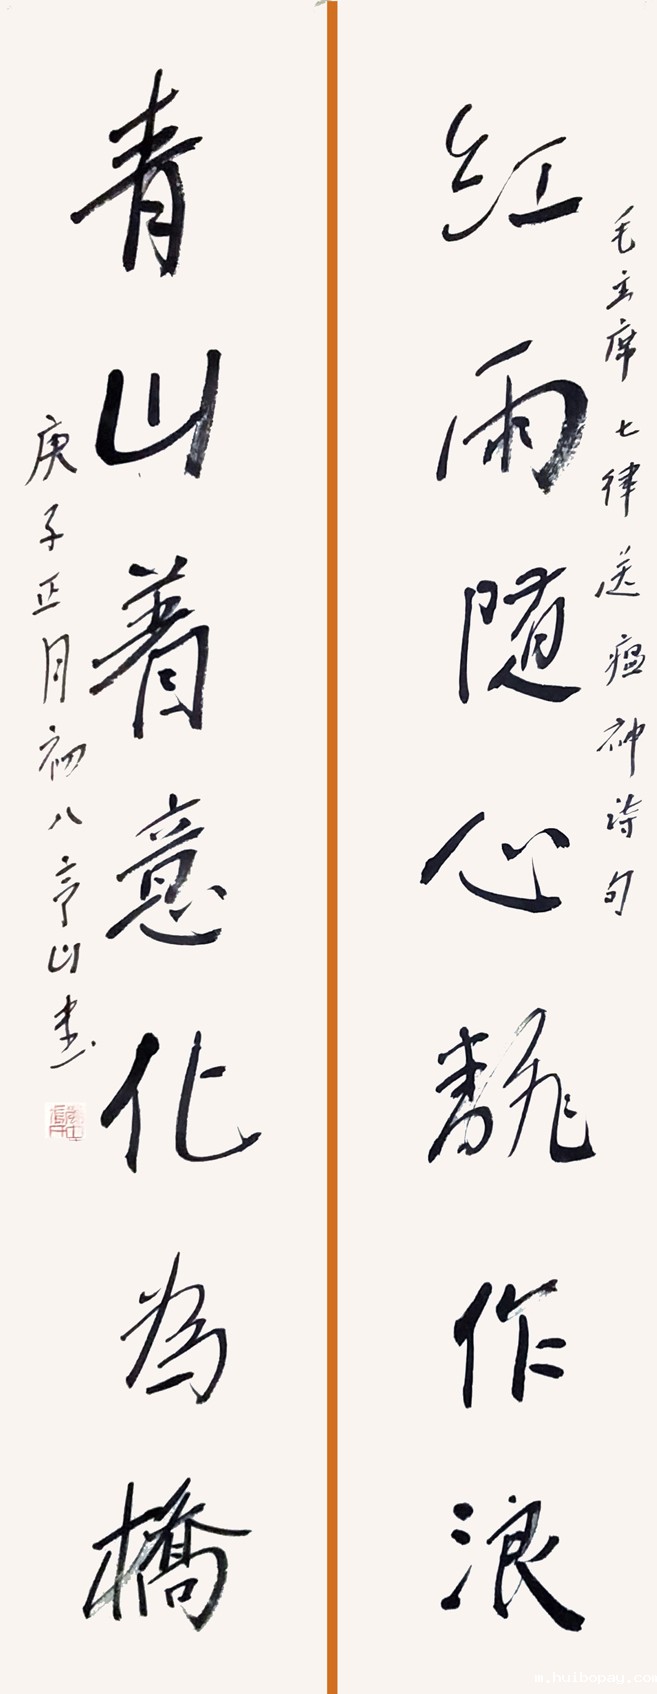 毛主席七律送瘟神詩句
紅雨随心飜作浪
青山着意化為橋
庚子正月初八亭山書
m.huibopay.com